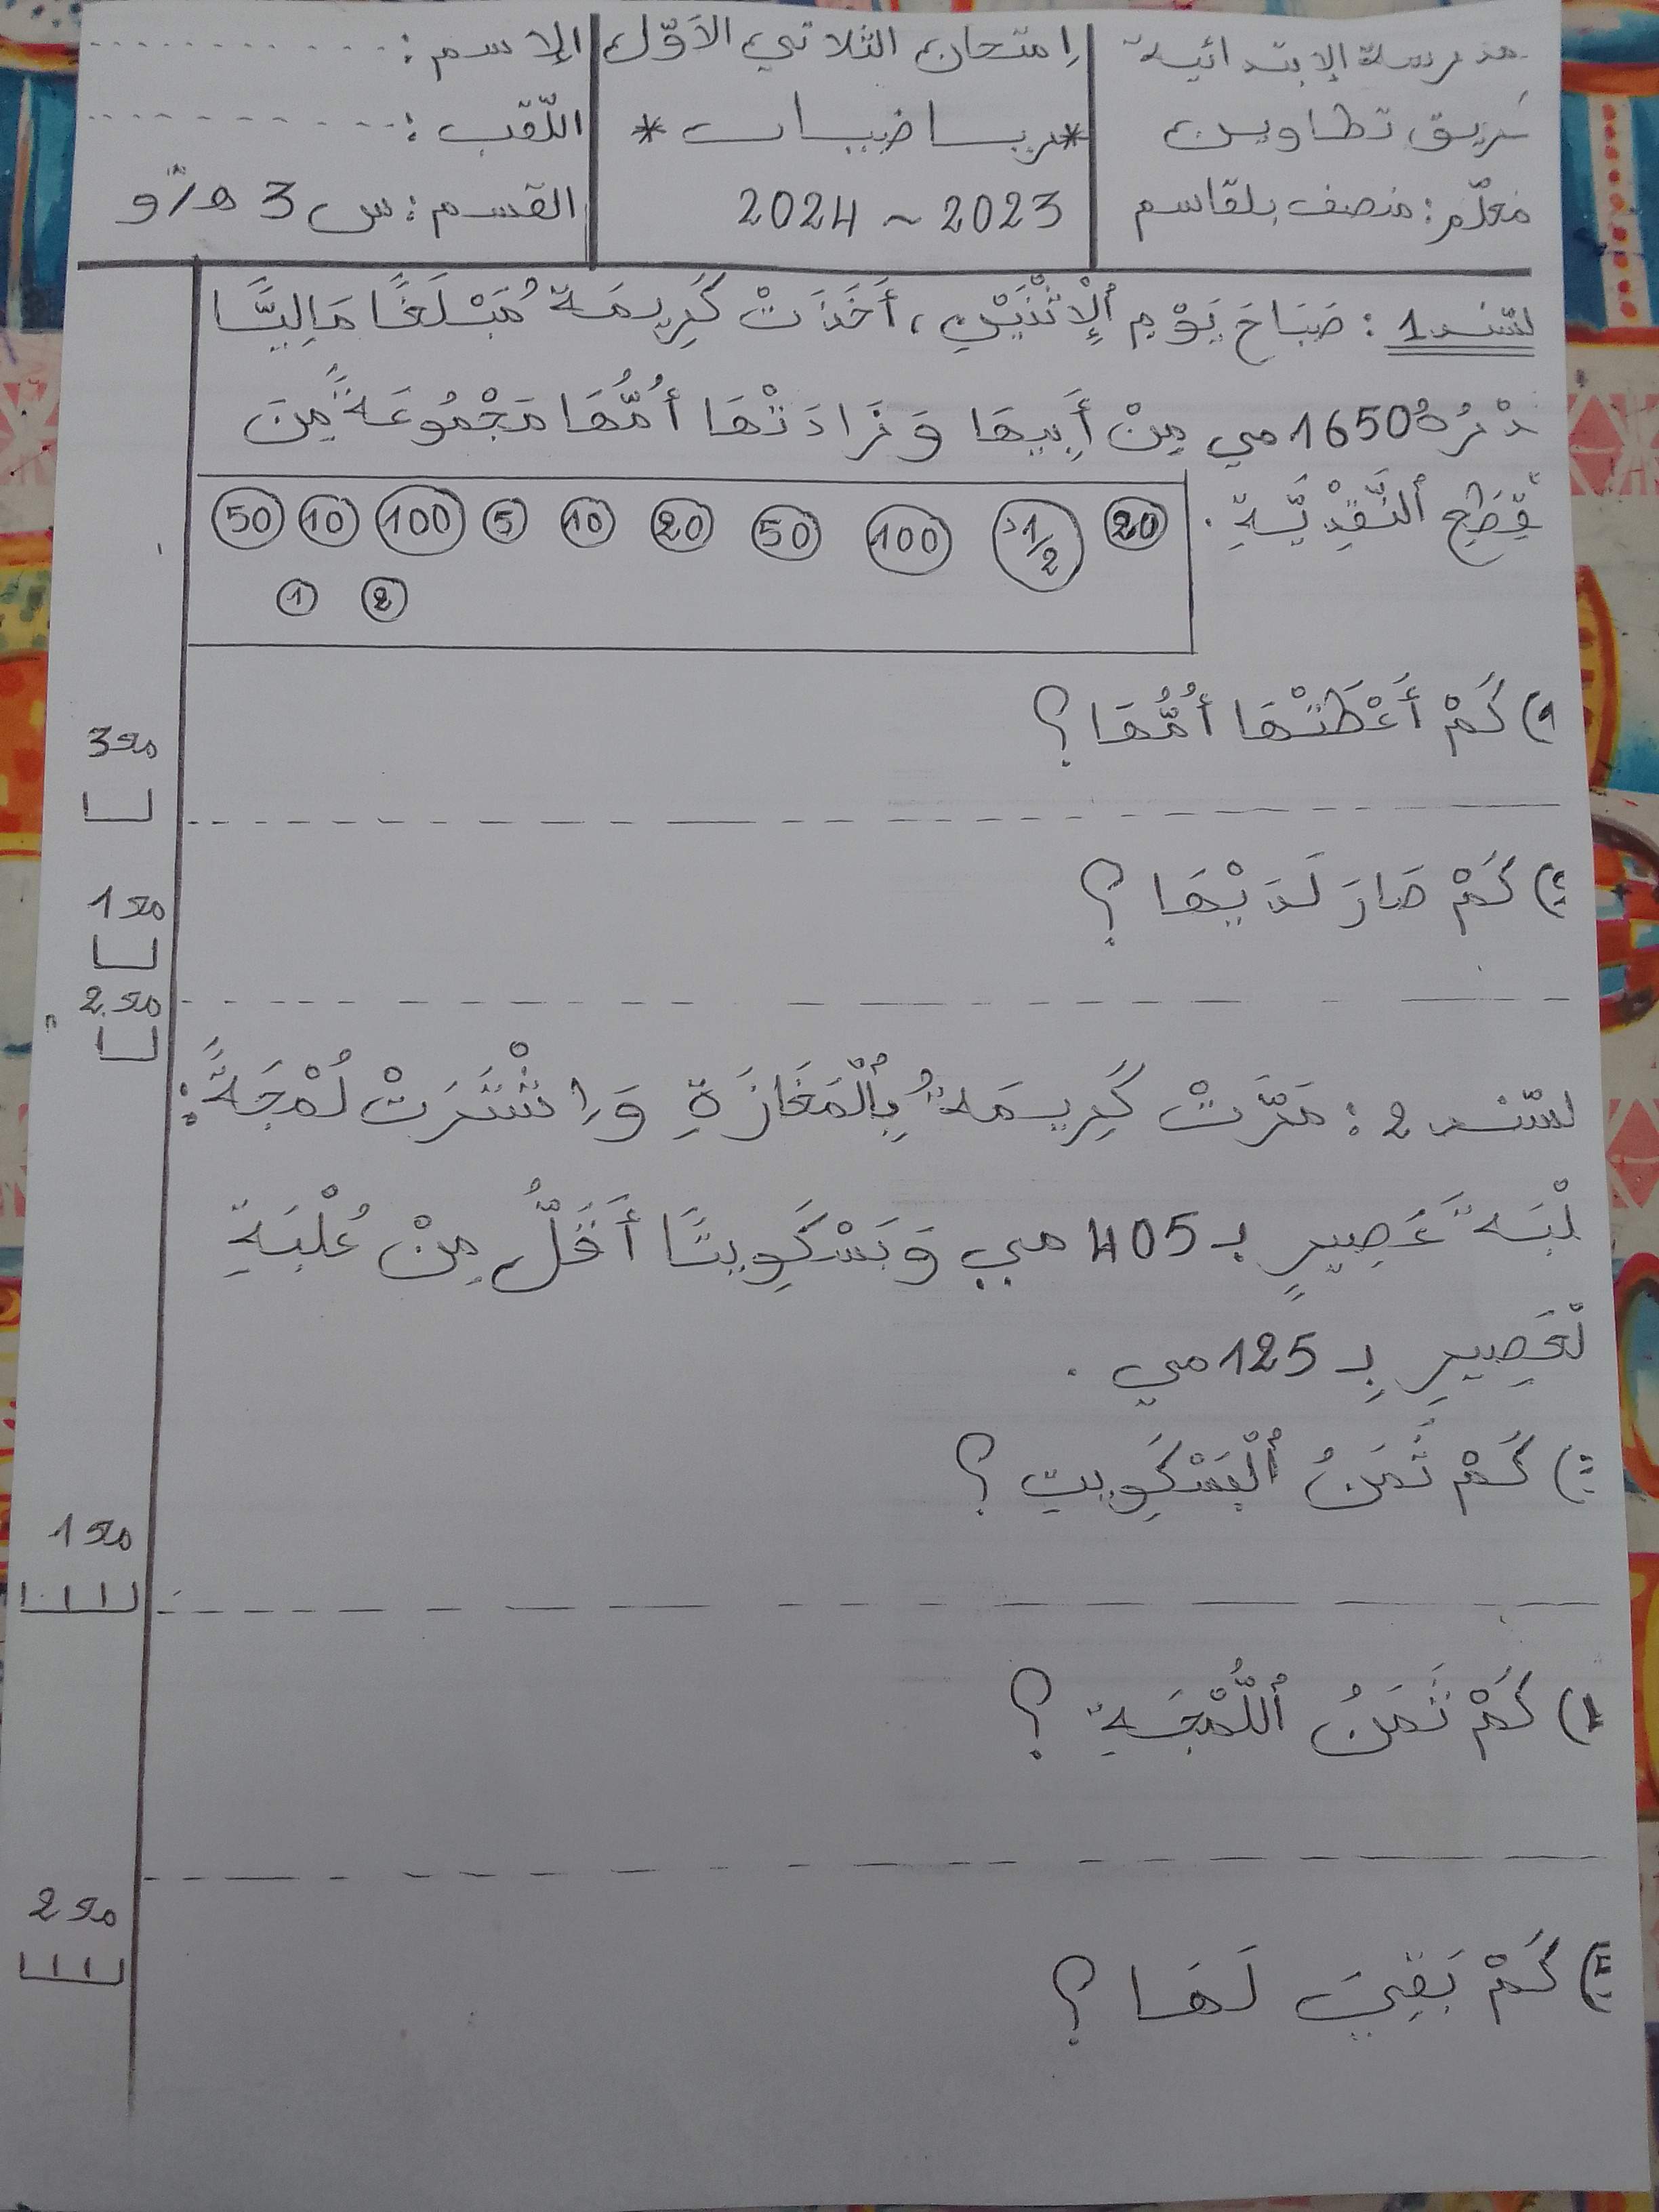 مدرسة الإبتدائية
طريق تطاوين
معلّم: منصف بلقاسم
اِمتحان الثلاثي الأوّل
*رياضيات*
2023 ~ 2024
الإسم: ...............
اللّقب: ...............
القسم: س 3
السّند 1: صَبَاحَ يَوْمِ ٱلْإِثْنَيْنِ، أَخَذَتْ كَرِيمَةُ مَبْلَغًا مَالِيًّا
قَدْرُهُ 1650 مي مِنْ أَبِيهَا وَ زَادَتْهَا أُمُّهَا مَجْمُوعَةً مِنَ
ٱلْقِطَعِ ٱلنَّقْدِيَّةِ.
20 1/2د 100 50 20 10 5 100 10 50
2 1
1) كَمْ أَعْطَتْهَا أُمُّهَا؟
3 مع1
كَمْ صَارَ لَدَيْهَا ؟
1 مع1
2 مع1
السّند 2: مَرَّتْ كَرِيمَةُ بِٱلْمَغَازَةِ وَ اِشْتَرَتْ لُمْجَةً:
عُلْبَةَ عَصِيرٍ بـ 405 مي وَ بَسْكَوِيتًا أَقَلُّ مِنْ عُلْبَةِ
ٱلْعَصِيرِ بِـ 125 مي.
كَمْ ثَمَنُ ٱلْبَسْكَوِيتِ ؟
كَمْ ثَمَنُ ٱللُّمْجَةِ ؟
كَمْ بَقِيَ لَهَا ؟